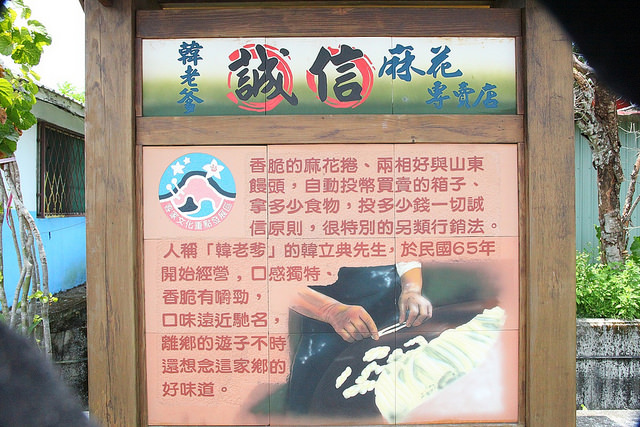 韓老爹 誠信 麻花
專賣店
香脆的麻花捲、兩相好與山東
饅頭，自動投幣買賣的箱子、
拿多少食物，投多少錢一切誠
信原則，很特別的另類行銷法。
人稱「韓老爹」的韓立典先生，於民國65年
開始經營，口感獨特、
香脆有嚼勁，
口味遠近馳名，
離鄉的遊子不時
還想念這家鄉的
好味道。